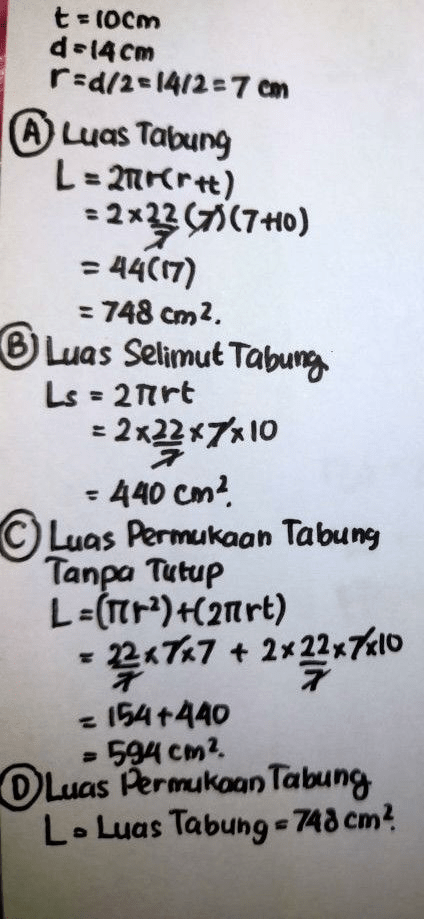 t = 10cm
d = 14 cm
r = d/2 = 14/2 = 7 cm
Ⓐ Luas Tabung
L = 2πr(r+t)
= 2 x 22/7 (7)(7+10)
= 44(17)
= 748 cm².
Ⓑ Luas Selimut Tabung
Ls = 2πrt
= 2 x 22/7 x 7 x 10
= 440 cm².
Ⓒ Luas Permukaan Tabung
Tanpa Tutup
L = (πr²)+(2πrt)
= 22/7 x 7 x 7 + 2 x 22/7 x 7 x 10
= 154 + 440
= 594 cm².
Ⓓ Luas Permukaan Tabung
L = Luas Tabung = 748 cm².